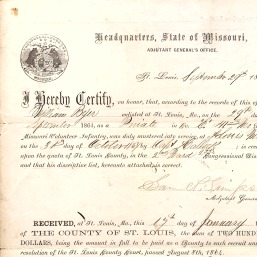 Headquarters, State of Missouri,
ADJUTANT GENERAL'S OFFICE.
St. Louis, September 29th 186
I Hereby Certify, on honor, that, according to the records of this of
William enlisted at St. Louis, Mo., on the 29th day
September 1864, as a in Co.
Missouri Volunteer Infantry, was duly mustered into service at
on the day of October 1864 by
upon the quota of St. Louis County, in the 2nd Ward Congressional Dist
and that his descriptive list herewith attached is correct.
Adjutant General
RECEIVED, at St. Louis, Mo., this 17th day of January
of THE COUNTY OF ST. LOUIS, the sum of TWO HUND
DOLLARS, being the amount in full to be paid as a Bounty to such recruit und
resolution of the St. Louis County Court, passed August 8th, 1864.